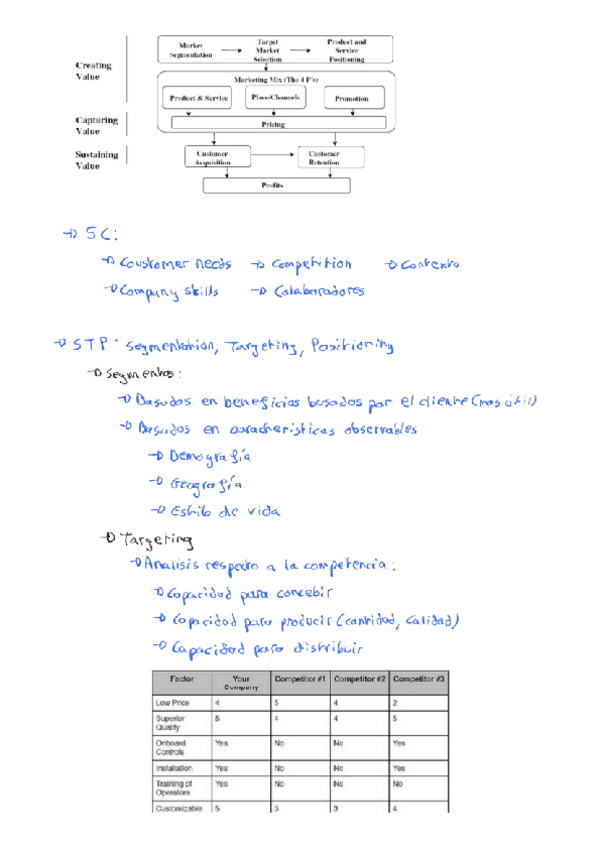 Creating Value
Market Segmentation
Target Market Selection
Product and Service Positioning
Marketing Mix (The 4 P's)
Product & Service
Place/Channels
Promotion
Capturing Value
Pricing
Sustaining Value
Customer Acquisition
Customer Retention
Profits
→ 5C:
→ Coustomer needs → Competition → Contexto
→ Company skills → Colaboradores
→ STP: Segmentation, Targeting, Positioning
→ Segmentos:
→ Basados en beneficios busados por el cliente (mas útil)
→ Basados en caracheristicas observables
→ Demografía
→ Geografía
→ Estilo de vida
→ Targeting
→ Analisis respecto a la competencia:
→ Capacidad para concebir
→ Capacidad para producir (cantidad, calidad)
→ Capacidad para distribuir
Factor Your Company Competitor #1 Competitor #2 Competitor #3
Low Price 4 5 4 2
Superior Quality 5 4 4 5
Onboard Controls Yes No No Yes
Installation Yes No No Yes
Training of Operators Yes No No No
Customizable 5 3 3 4